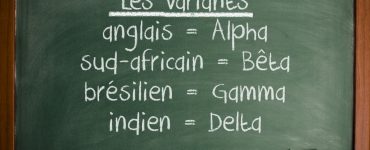 Les variants
anglais = Alpha
sud-africain = Bêta
brésilien = Gamma
indien = Delta